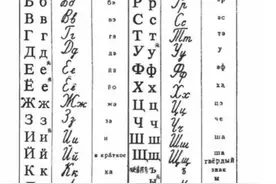 Б б Бб бэ Р р Рр эр
В в Вв вэ С с Сс эс
Г г Гг гэ Т т Тт тэ
Д д Дд дэ У у Уу у
Е е Ее йэ Ф ф Фф эф
Ё ё Ёё йо Х х Хх ха
Ж ж Жж жэ Ц ц Цц цэ
З з Зз зэ Ч ч Чч че
И и Ии и Ш ш Шш ша
Й й Йй и крáткое Щ щ Щщ ща
К к Кк ка ъ твёрдый знак
ы